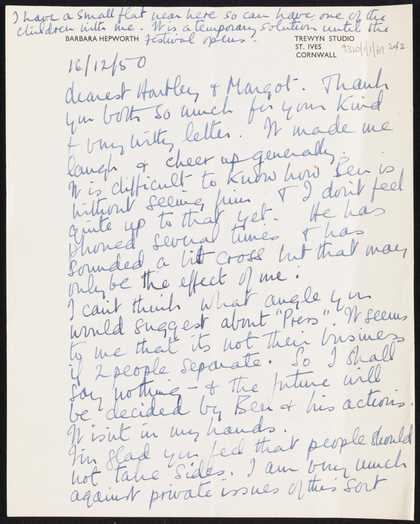 I have a small flat near here so can have one of the
children with me. It is a temporary solution until the
festival opens.
BARBARA HEPWORTH
TREWYN STUDIO
ST. IVES
CORNWALL
16/12/50
dearest Hartley & Margot. Thank
you both so much for your kind
& very witty letter. It made me
laugh & cheer up generally.
It is difficult to know how Ben is
without seeing him & I don't feel
quite up to that yet. He has
phoned several times & has
sounded a bit cross but that may
only be the effect of me!
I can't think what angle you
would suggest about "Press". It seems
to me that its not their business
if 2 people separate. So I shall
say nothing - & the future will
be decided by Ben & his actions.
It isnt in my hands.
I'm glad you feel that people should
not take sides. I am very much
against private issues of this sort